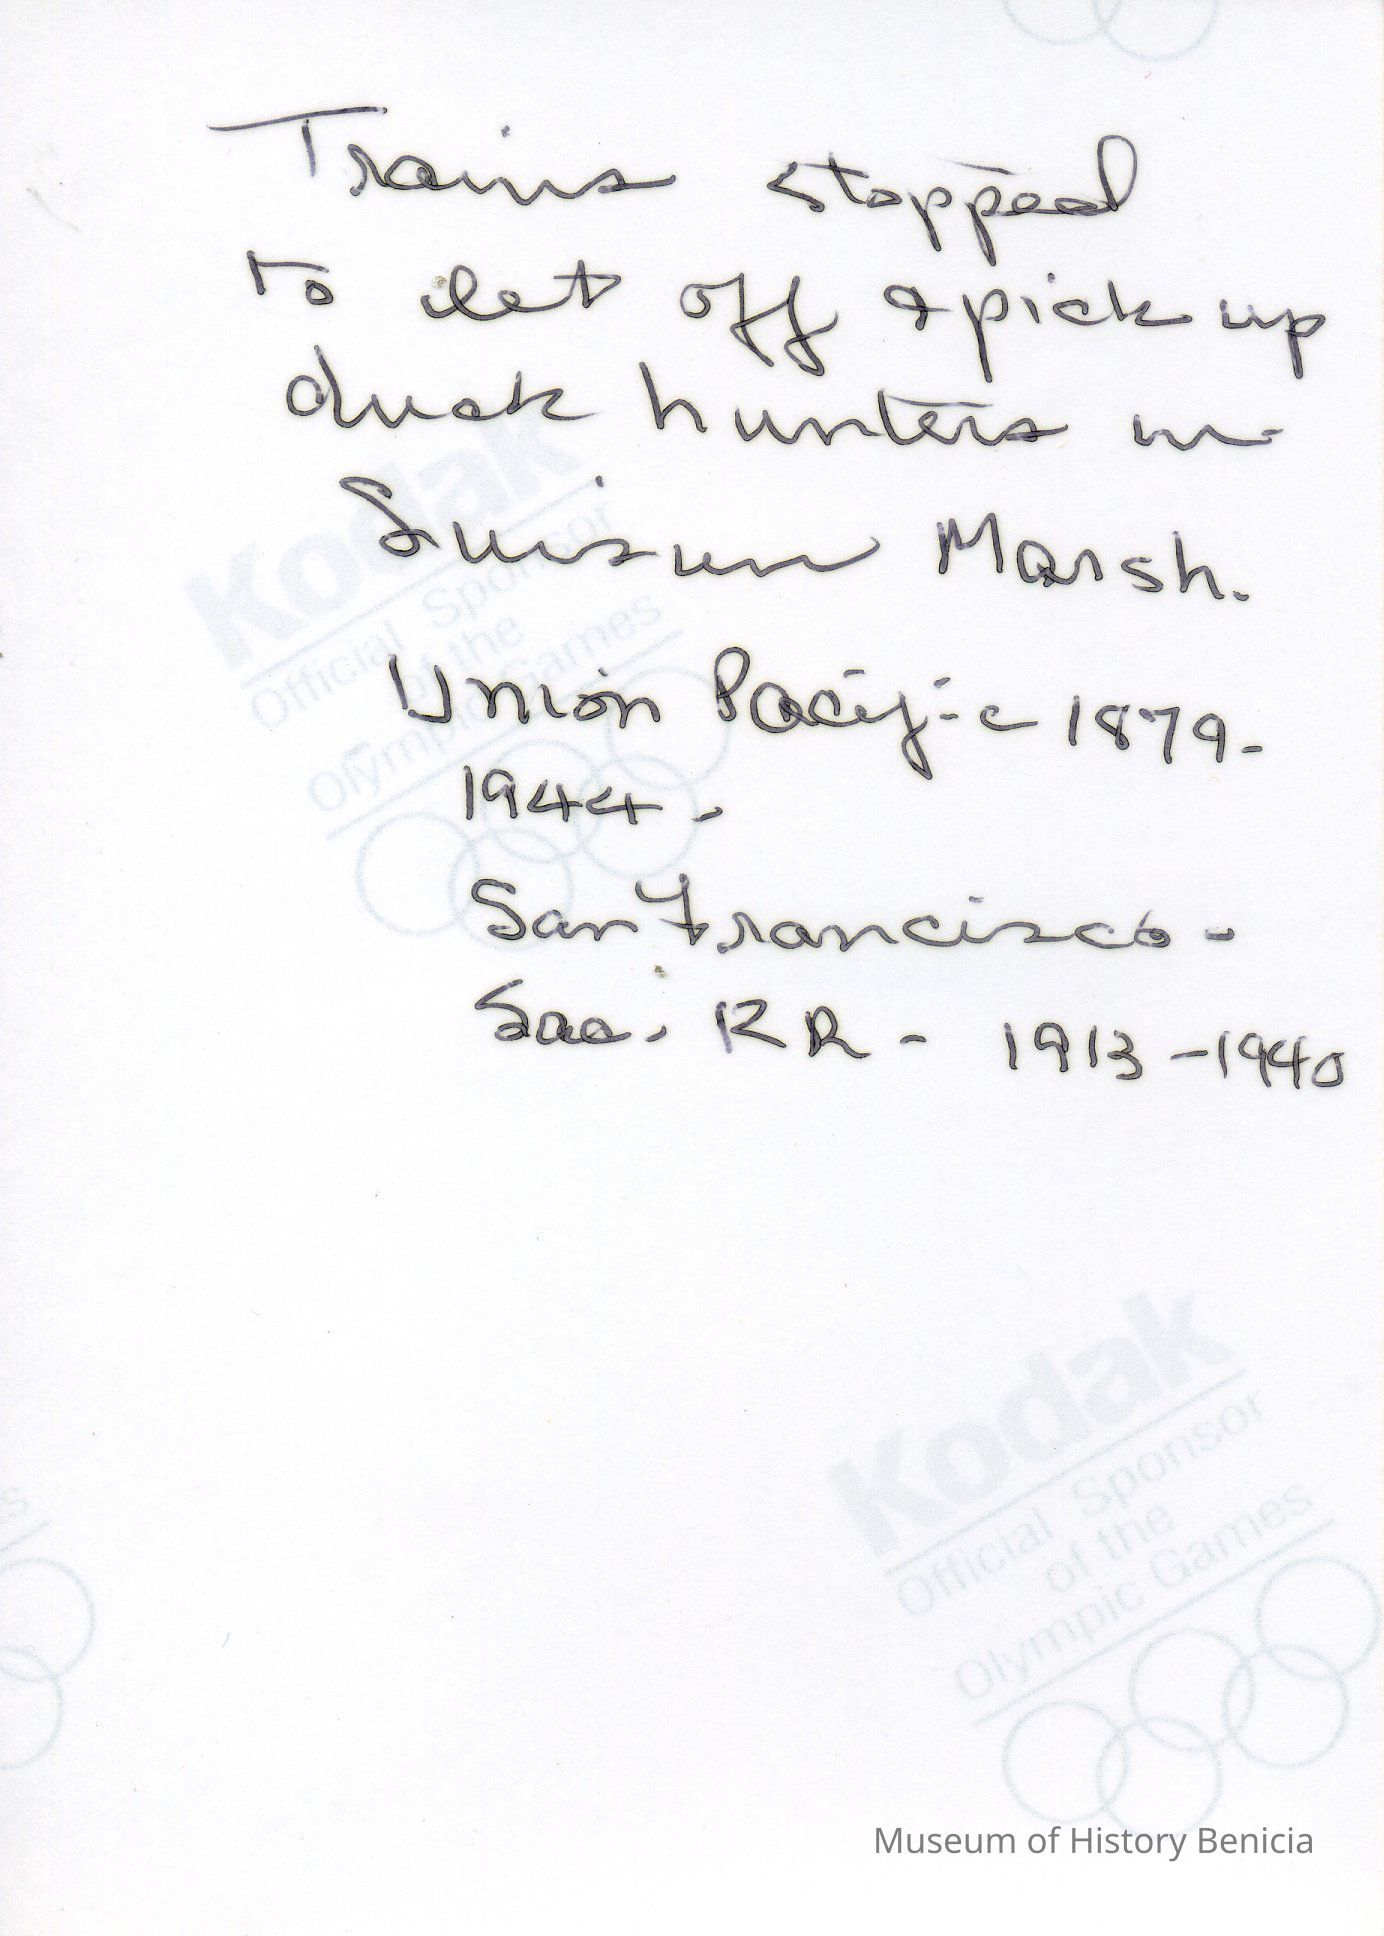 Trains stopped
to let off & pick up
duck hunters in
Suisun Marsh.
Union Pacific 1879-
1944.
San Francisco -
Sac. RR - 1913-1940
Kodak
Official Sponsor
of the
Olympic Games
Kodak
Official Sponsor
of the
Olympic Games
Museum of History Benicia